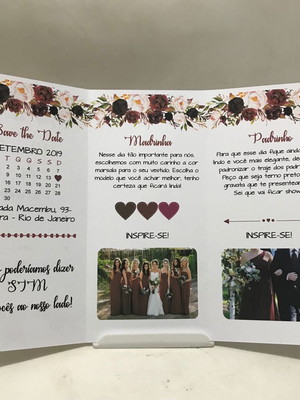 Save the Date
ETEMBRO 2019
T Q Q S S D
2 3 4 5 6 7
9 10 11 12 13
16 17 18 19 20 21
23 24 25 26 27 28
30
ada Macembu, 93-
ra - Rio de Janeiro
poderíamos dizer
SIM
ocês ao nosso lado!
Madrinha
Nesse dia tão importante para nós,
escolhemos com muito carinho a cor
marsala para o seu vestido. Escolha o
modelo que você achar melhor, tenho
certeza que ficará linda!
INSPIRE-SE!
Padrinho
Para que esse dia fique ainda
lindo e você mais elegante, de
padronizar o traje dos padr
Peço que seja terno preto
gravata que te presentea
Sei que vai ficar show
INSPIRE-SE!